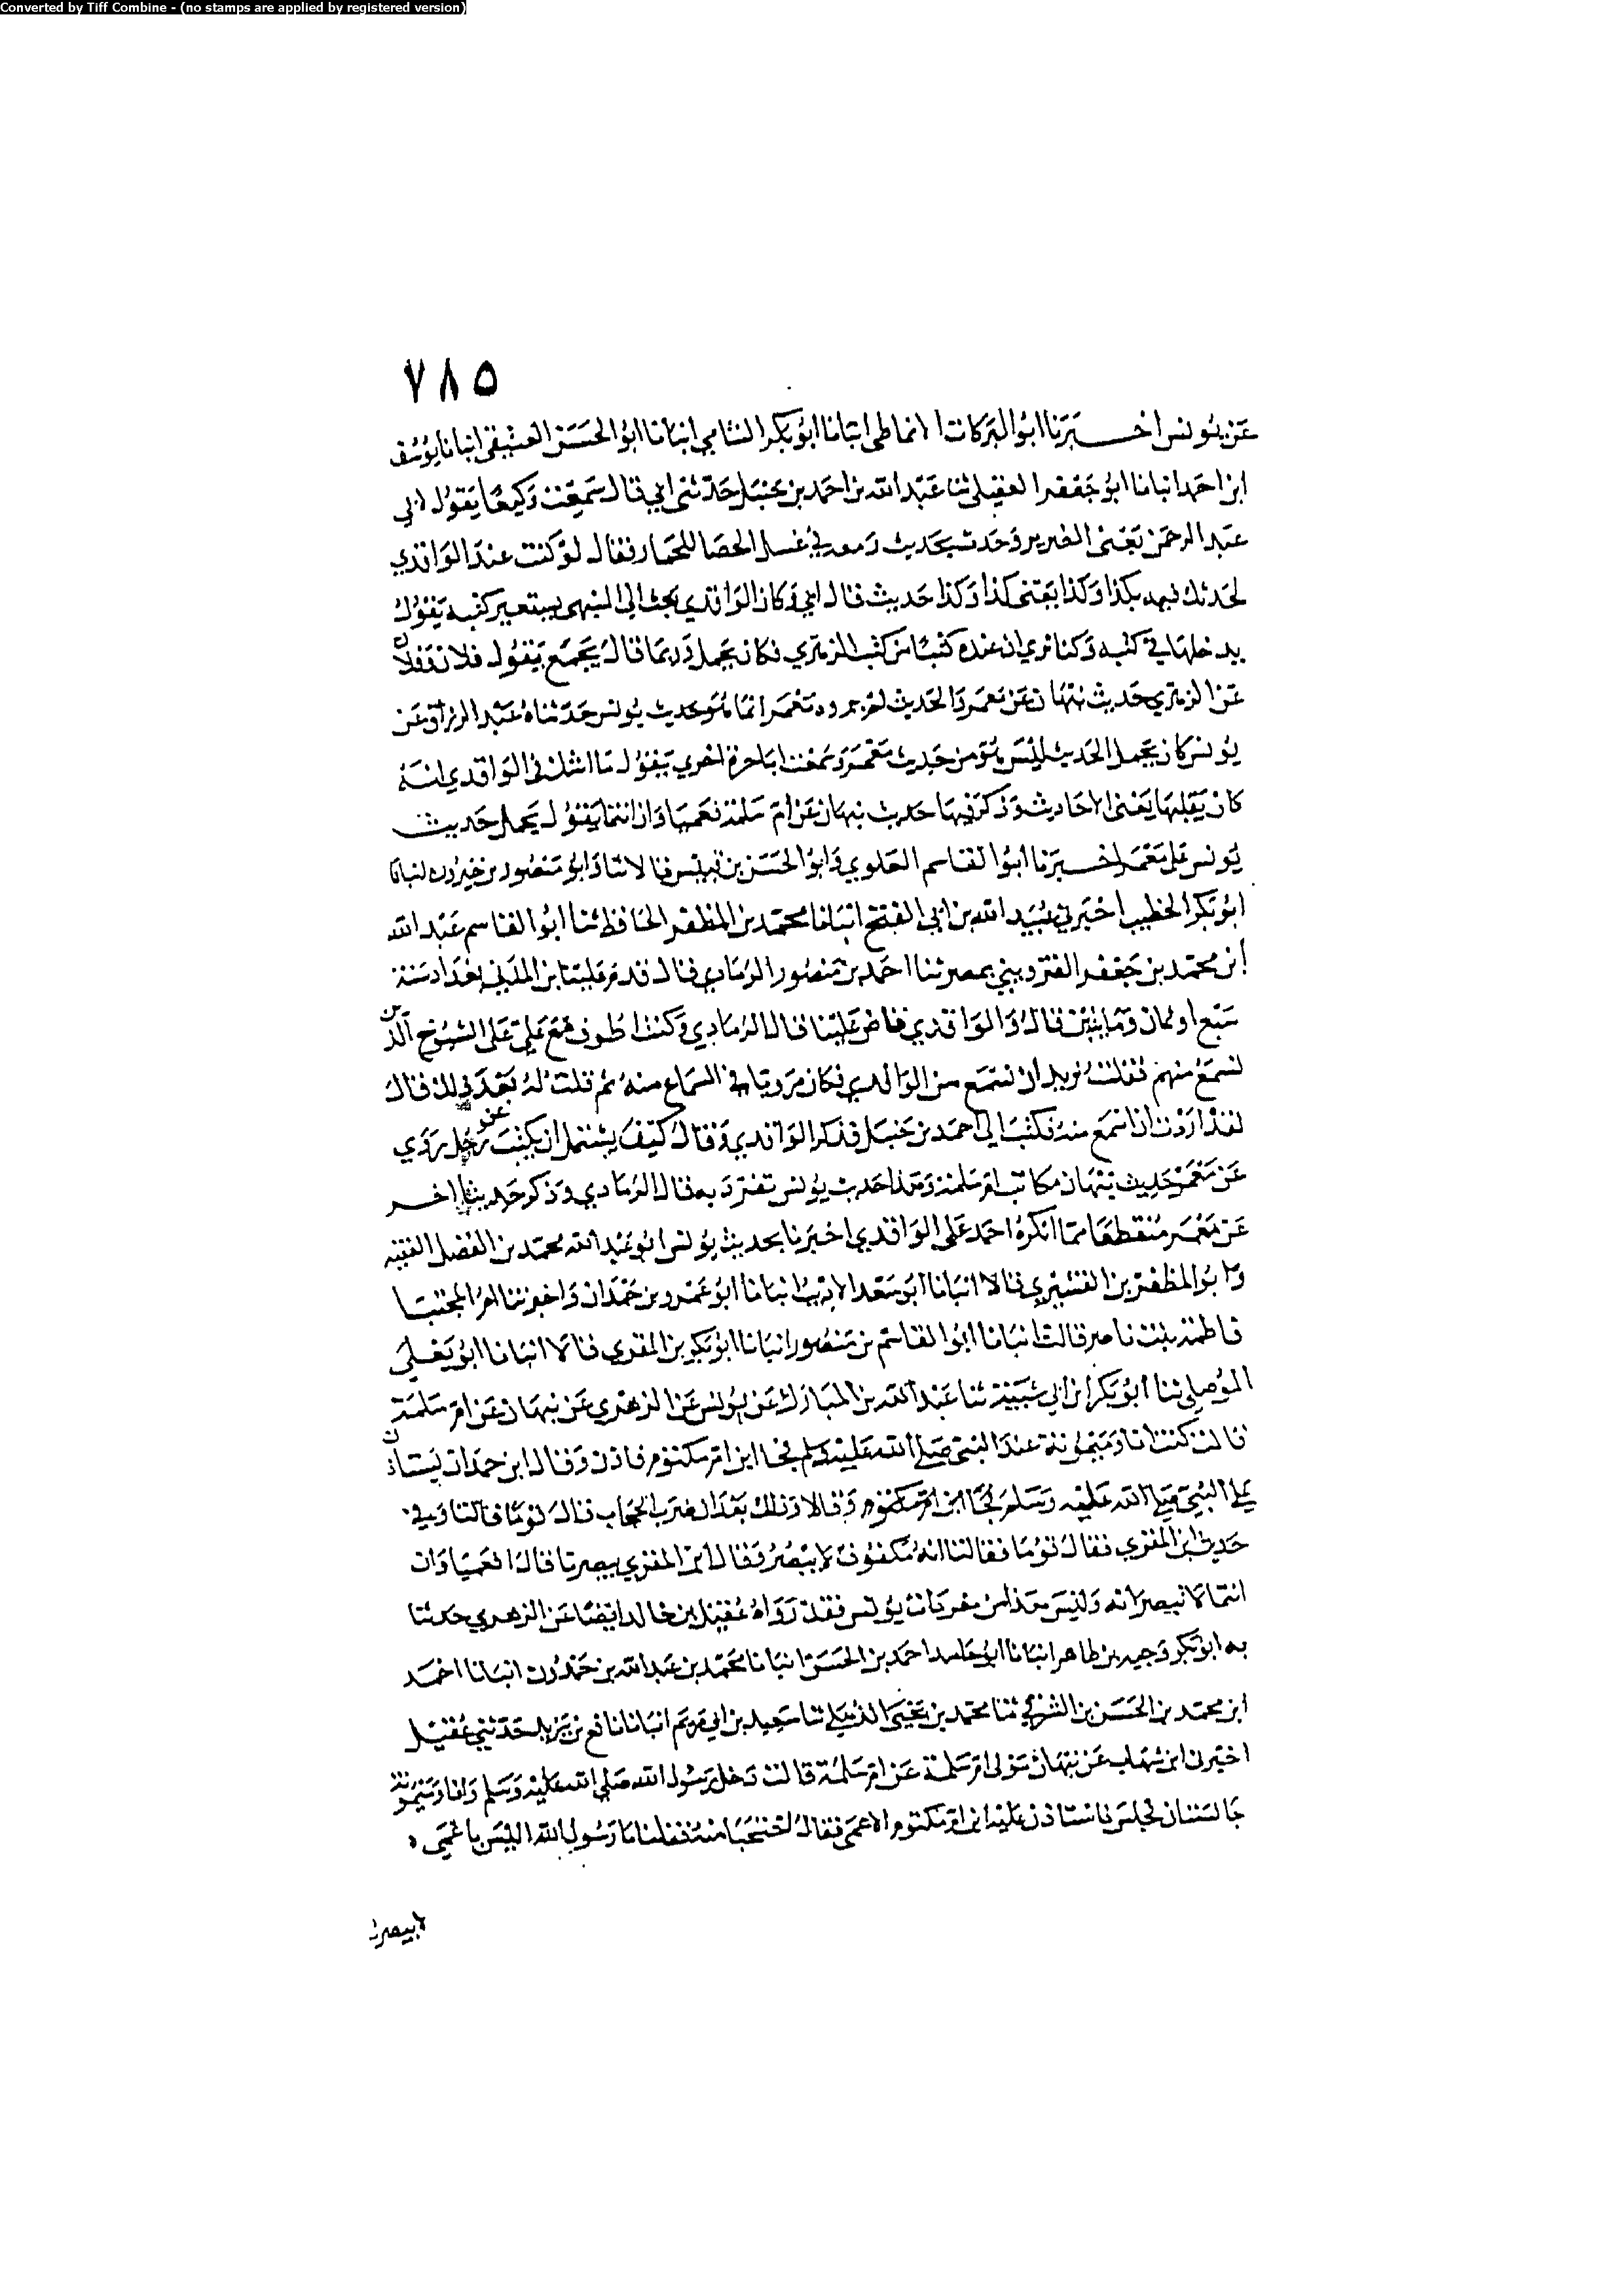 Converted by Tiff Combine - (no stamps are applied by registered version)
٧٨٥
عن يونس اخبرنا ابو البركات الانماطي انبانا ابو بكر الشامي انبانا ابو الحسن العتيقي انبانا يوسف
ابن احمد انبانا ابو جعفر العقيلي ثنا عبد الله بن احمد بن حنبل حدثني ابي قال سمعت وكيعا يقول لابي
عبد الرحمن يعني الضرير وحدث بحديث في غسل الحصا للجمار فقال لو كنت عند الواقدي
لحدثك فيه بكذا وكذا يعني كذا وكذا حديث قال ابي وكان الواقدي يستعير كتبه يقول
يدخلها في كتبه وكنا نرى ان عنده كتبا من كتب الزهري فكان يحمل وربما قال يجمع يقول فلان وفلان
عن الزهري حديث نبهان عن معمر والحديث معمر انما هو حديث يونس حدثناه عبد الرزاق عن
يونس كان يحمل الحديث ليس هو من حديث معمر وسمعت اخرى يقول ما اشك في الواقدي انه
كان يقلبها يعني الاحاديث وذكر فيها حديث نبهان عن ام سلمة افعمياوان انتما يقول يحمل حديث
يونس على معمر اخبرنا ابو القاسم العلوي وابو الحسن بن قبيس قالا ثنا وابو منصور بن خيرون انبانا
ابو بكر الخطيب اخبرني عبيد الله بن ابي الفتح انبانا محمد بن المظفر الحافظ ثنا ابو القاسم عبد الله
ابن محمد بن جعفر القزويني بمصر ثنا احمد بن منصور الرمادي قال قدم علينا ابن المديني بغداد سنة
سبع او ثمان ومايتين قال والواقدي قاض علينا قال الرمادي وكنت اطوف مع علي على الشيوخ الذين
نسمع منهم فقلت نريد ان نسمع من الواقدي فكان مرويا في السماع منه ثم قلت له بعد ذلك فقال
لقد اردت ان اسمع منه فكتب الي احمد بن حنبل فذكر الواقدي وقال كيف يستحل ان يكتب عن رجل روى
عن معمر حديث نبهان مكاتب ام سلمة وهذا حديث يونس تفرد به قال الرمادي وذكر حديثا اخر
عن معمر منقطعا مما انكره احمد على الواقدي اخبرنا بحديث يونس ابو عبد الله محمد بن الفضل الفقيه
وابو المظفر بن القشيري قالا انبانا ابو سعد الاديب انبانا ابو عمرو بن حمدان واخبرتنا ام المجتبا
فاطمة بنت ناصر قالت انبانا ابو القاسم بن منصور انبانا ابو بكر بن المقري قالا انبانا ابو يعلى
الموصلي ثنا ابو بكر ابن ابي شيبة ثنا عبد الله بن المبارك عن يونس عن الزهري عن نبهان عن ام سلمة
قالت كنت انا وميمونة عند النبي صلى الله عليه وسلم فجا ابن ام مكتوم فاذن وقال ابن حمدان يستاذن
على النبي صلى الله عليه وسلم فجا ابن ام مكتوم وقالا وذلك بعد ان ضرب الحجاب قال قوما فقالتا وفي
حديث ابن المقري فقال قوما فقالتا انه مكفوف لا يبصر وقال ابن المقري يبصرنا قال افعمياوان
انتما لا تبصرانه وليس هذا من مفردات يونس فقد رواه عقيل بن خالد ايضا عن الزهري حدثنا
به ابو بكر وجيه بن طاهر انبانا ابو حامد احمد بن الحسن انبانا محمد بن عبد الله بن حمدون انبانا احمد
ابن محمد بن الحسن بن الشرقي ثنا محمد بن يحيى الذهلي ثنا سعيد بن ابي مريم انبانا نافع بن يزيد حدثني عقيل
اخبرني ابن شهاب عن نبهان مولى ام سلمة عن ام سلمة قالت دخل رسول الله صلى الله عليه وسلم وانا وميمونة
جالستان فجلس فاستاذن عليه ابن ام مكتوم الاعمى فقال احتجبا منه فقلنا يا رسول الله اليس باعمى
لا يبصرنا